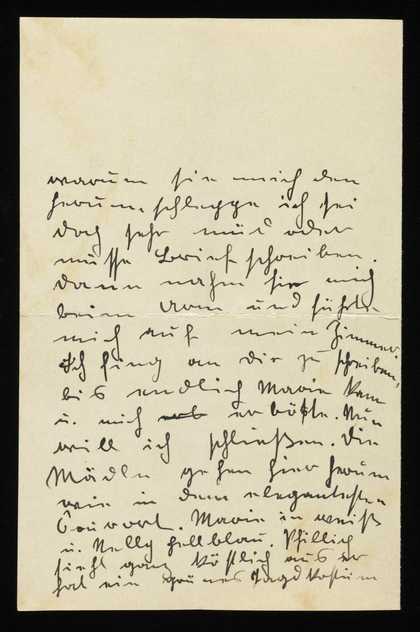 warum sie mich den
herum schleppe ich sei
doch sehr müd oder
müsse Brief schreiben.
dann nahm sie mich
beim Arm und führte
mich auf mein Zimmer
Ich fing an dir zu schreiben,
bis endlich Marie kam
u. mich erlöste. Nun
will ich schließen. Die
Mädln gehen hier herum
wie in dem elegantesten
Curort. Marie in weiß
u. Nelly hellblau.
sieht ganz köstlich aus er
hat ein grünes Jagdkostüm